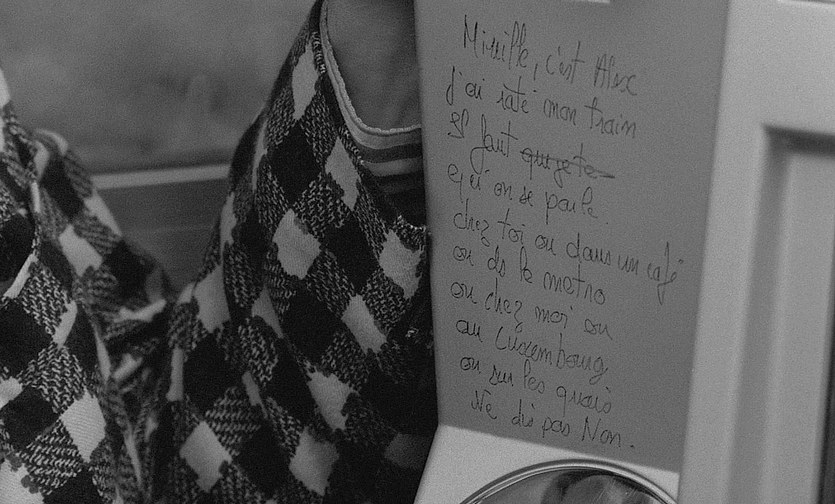 Mireille, c'est Alex
j'ai raté mon train
Il faut que je te
qu'on se parle.
chez toi ou dans un café
ou ds le metro
ou chez moi ou
au Luxembourg
ou sur les quais
Ne dis pas Non.